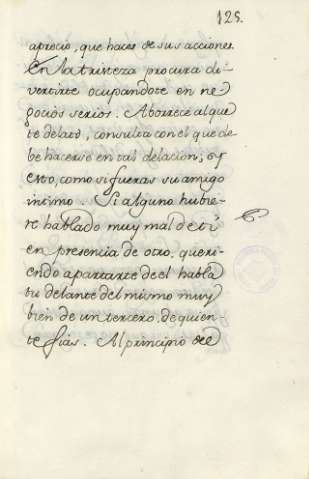 125.
aprecio, que haces de sus acciones.
En la tristeza procura di-
vertirte ocupandote en ne-
gocios serios. Aborrece al que
te delató, consulta con el que de-
be hacerse en tal delacion, y
esto, como si fueras su amigo
intimo. Si alguno hubie-
re hablado muy mal de ti
en presencia de otro, queri-
endo apartarte de el habla
tu delante del mismo muy
bien de un tercero, de quien
te fias. Al principio del